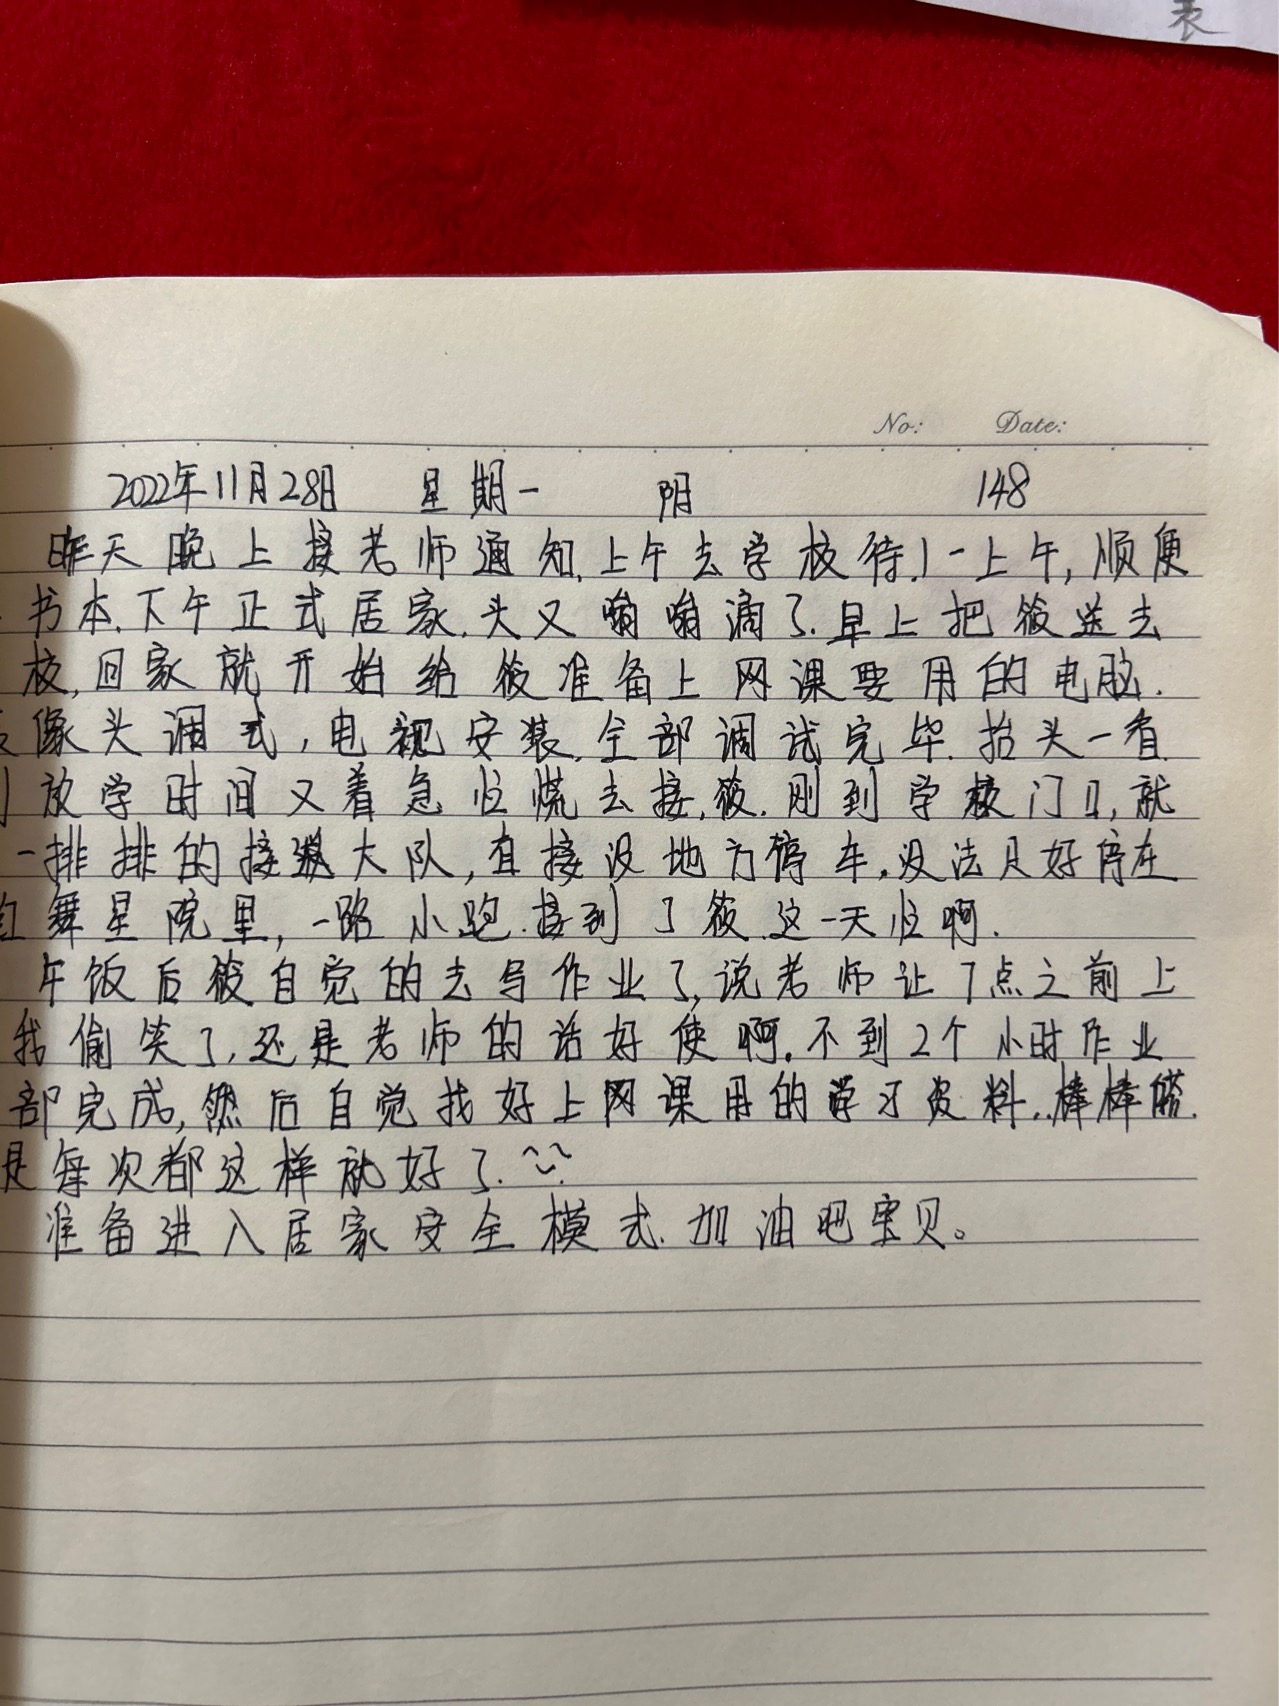 表
No: Date:
2022年11月28日 星期一 阴 148
昨天晚上接老师通知,上午去学校待1一上午,顺便
书本.下午正式居家.头又嗡嗡滴了.早上把筱送去
校,回家就开始给筱准备上网课要用的电脑.
像头调式,电视安装.全部调试完毕.抬头一看
放学时间又着急忙慌去接筱.刚到学校门口,就
一排排的接送大队,直接没地方停车.没法只好停在
红舞星院里,一路小跑.接到了筱.这一天忙啊.
午饭后筱自觉的去写作业了,说老师让7点之前上
我偷笑了,还是老师的话好使啊.不到2个小时作业
部完成,然后自觉找好上网课用的学习资料..棒棒哒.
是每次都这样就好了.
准备进入居家安全模式.加油吧宝贝。